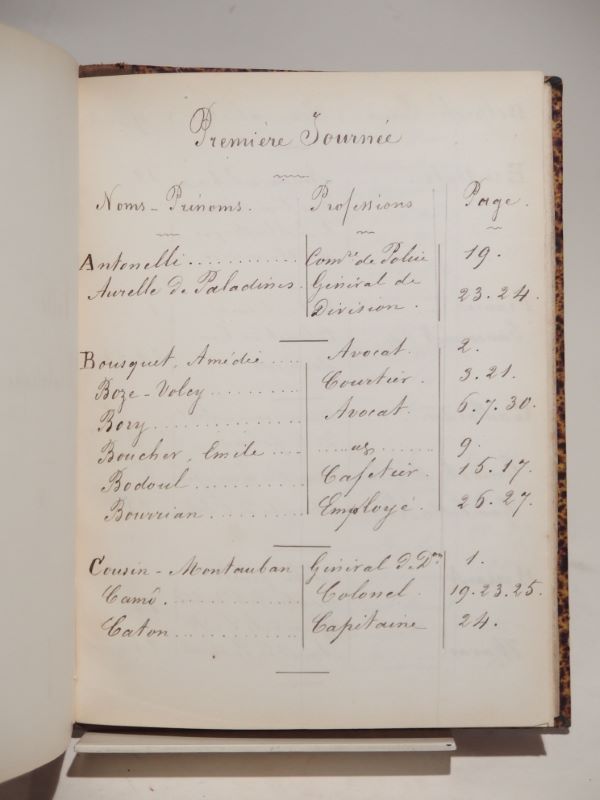 Première Journée
Noms-Prénoms. Professions Page.
Antonelli............ Comre de Police 19.
Aurelle de Paladines. Général de 23.24.
Division.
Bousquet, Amédée.... Avocat. 2.
Boze-Volcy.......... Courtier. 3.21.
Bory................ Avocat. 6.7.30.
Boucher, Emile .... 9.
Bodoul.............. Cafetier. 15.17.
Bourrian............ Employé. 26.27.
Cousin-Montauban Général de Don 1.
Camô................ Colonel. 19.23.25.
Caton............... Capitaine 24.